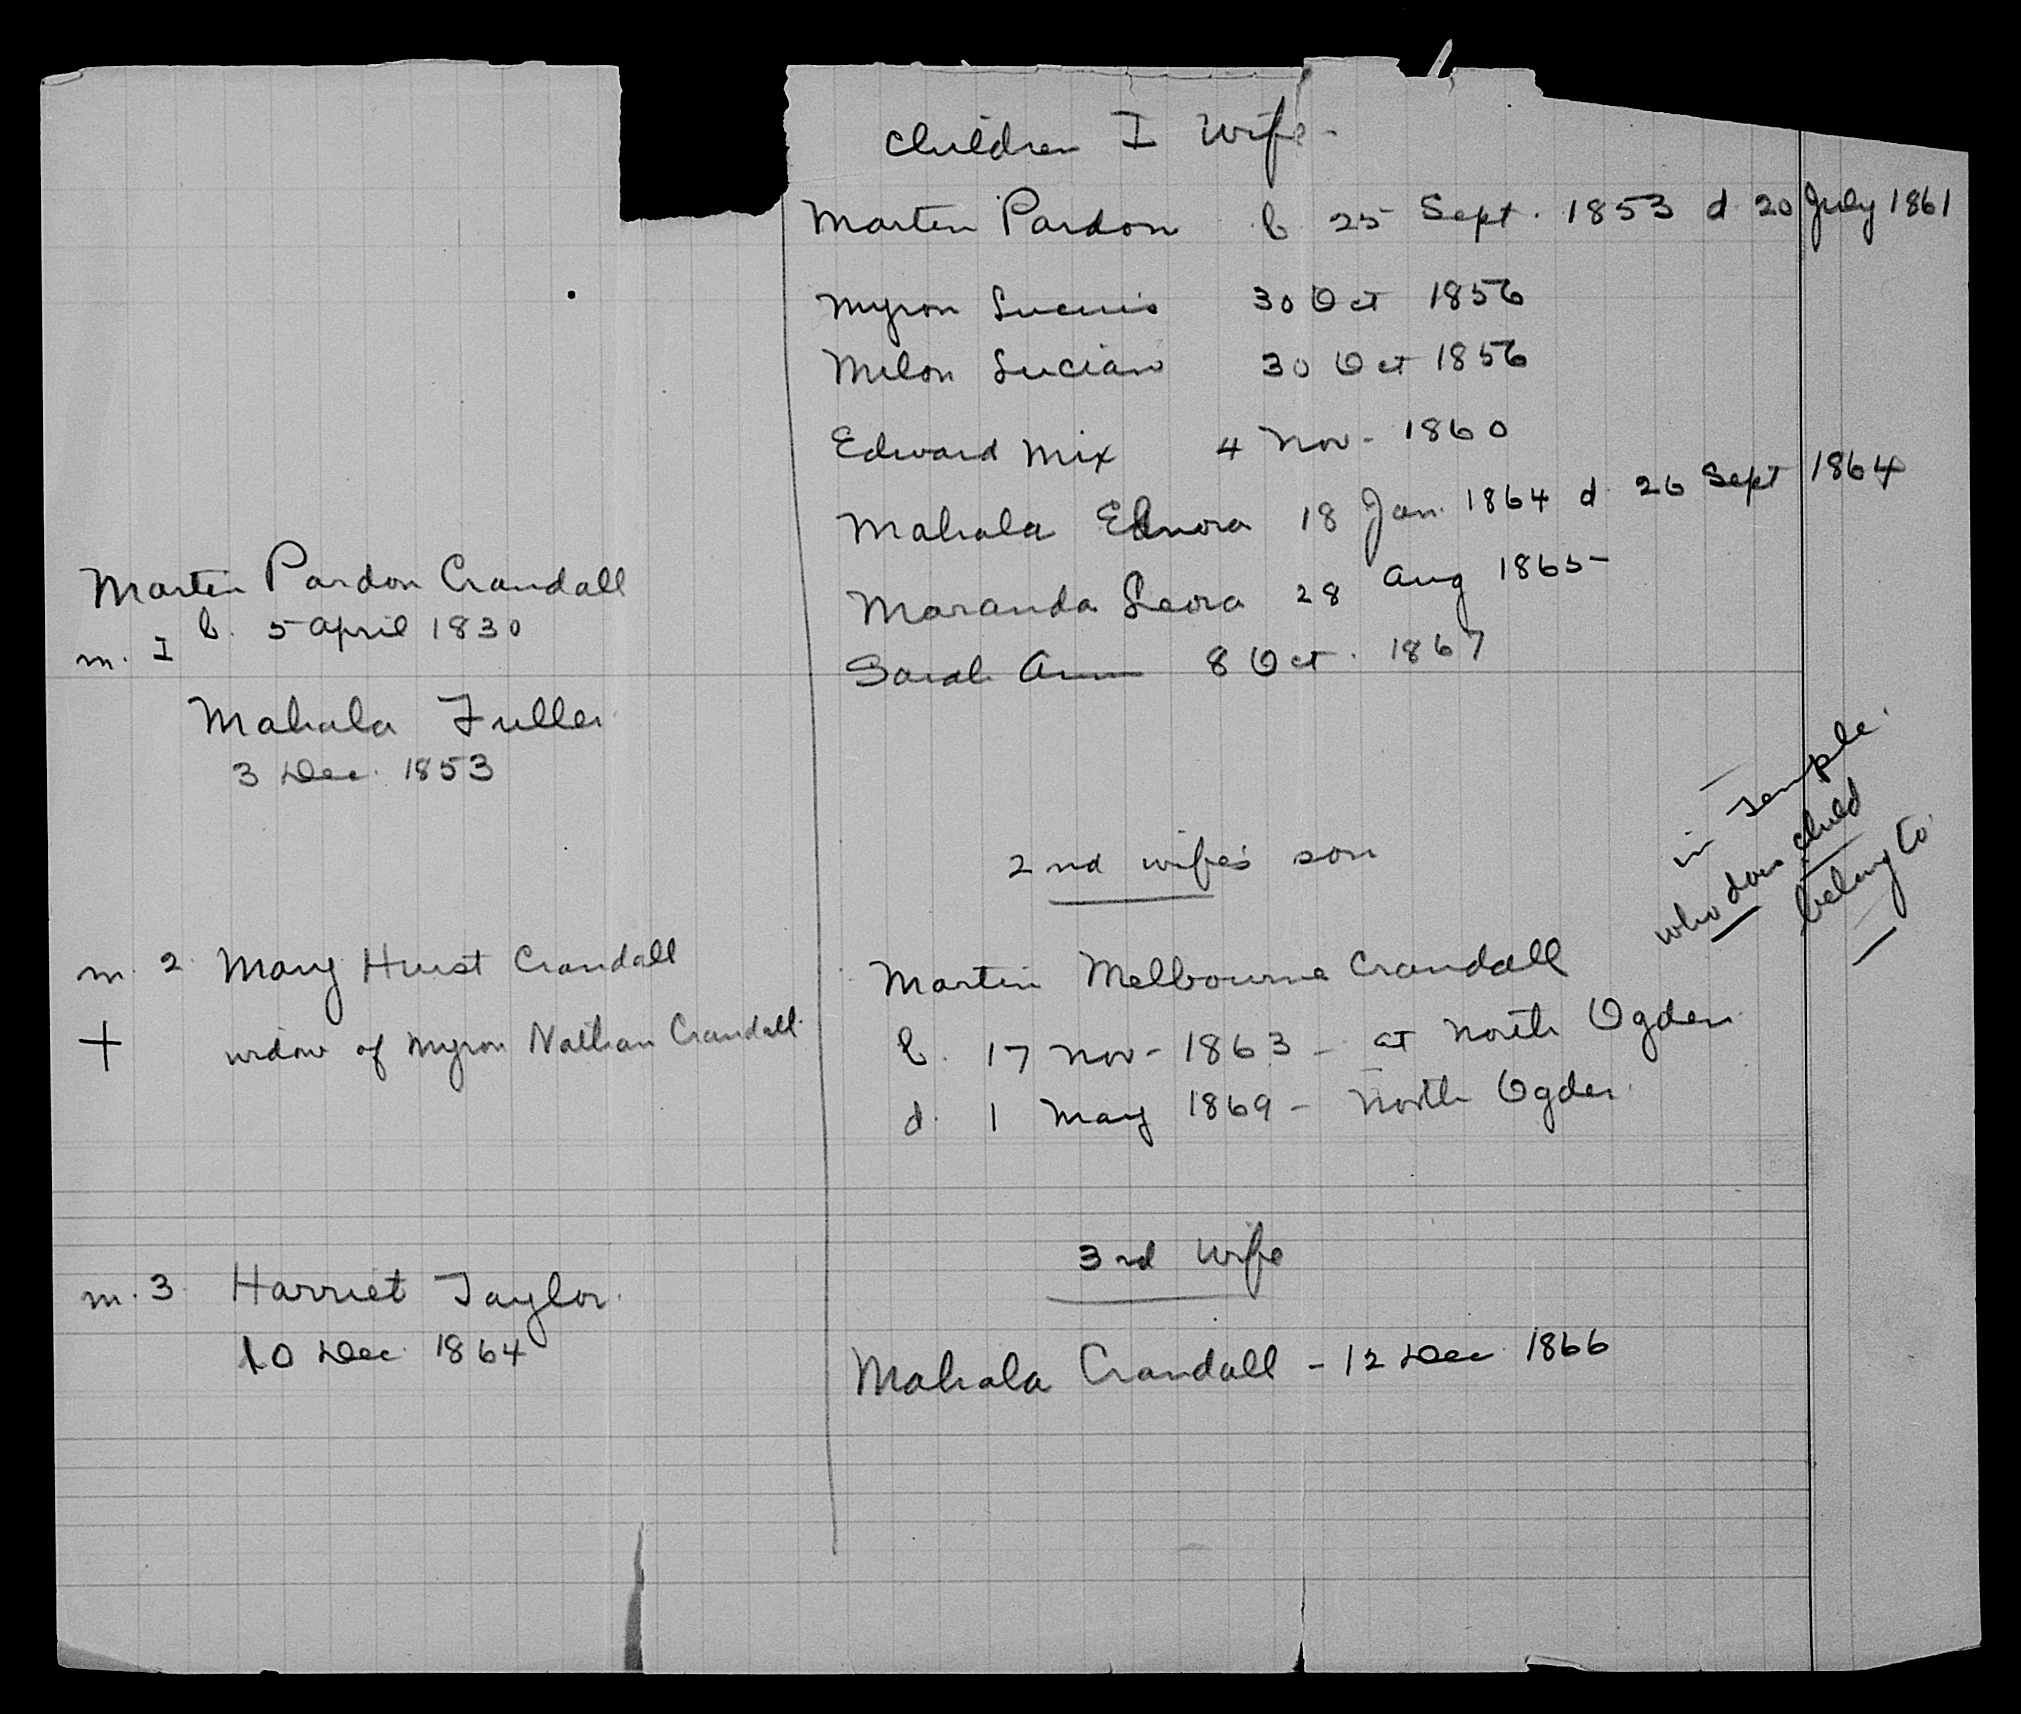 Children I Wife -
Martin Pardon b. 25 Sept. 1853 d. 20 July 1861
Myron Lucius 30 Oct 1856
Milon Lucian 30 Oct 1856
Edward Mix 4 Nov - 1860
Mahala Elnora 18 Jan. 1864 d. 26 Sept 1864
Maranda Leora 28 Aug 1865 -
Sarah Ann 8 Oct. 1867
Martin Pardon Crandall
b. 5 April 1830
m. I
Mahala Fuller
3 Dec. 1853
2nd wife's son
in Temple.
who does child
belong to
m. 2. Mary Hurst Crandall
+ widow of Myron Nathan Crandall.
Martin Melbourne Crandall
b. 17 Nov - 1863 - at North Ogden.
d. 1 May 1869 - North Ogden.
m. 3. Harriet Taylor.
10 Dec. 1864
3rd Wife
Mahala Crandall - 12 Dec. 1866